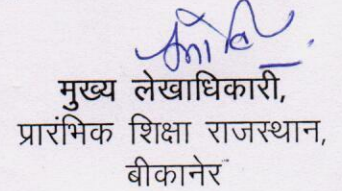 मुख्य लेखाधिकारी,
प्रारंभिक शिक्षा राजस्थान,
बीकानेर